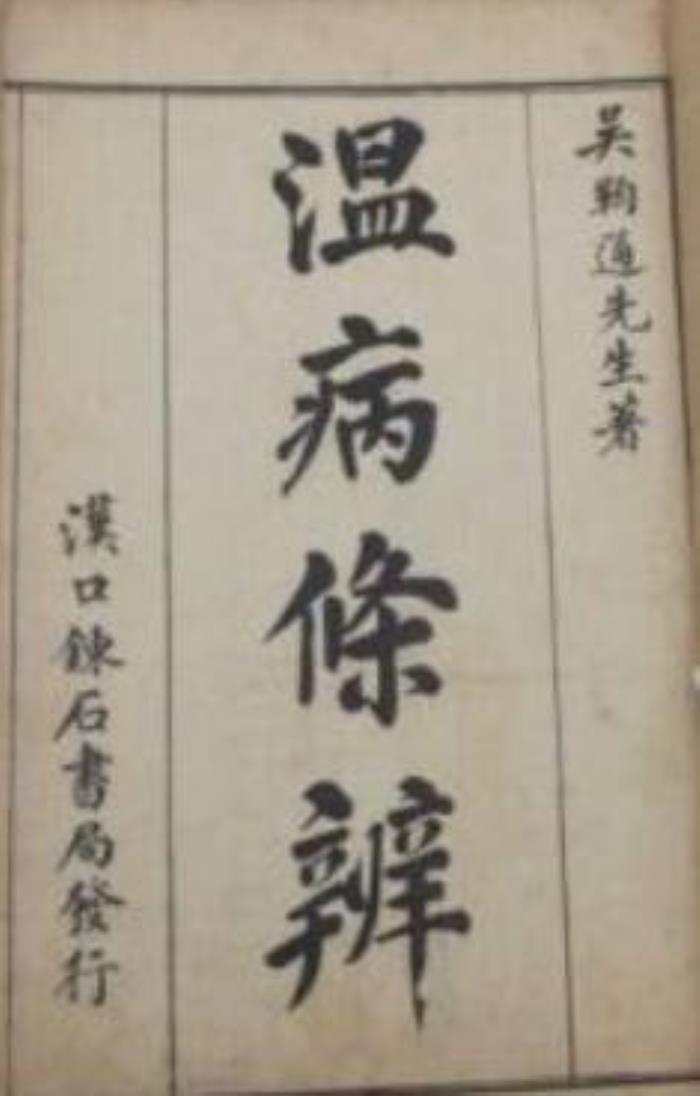 吴鞠通先生著
温病條辨
漢口錬石書局發行